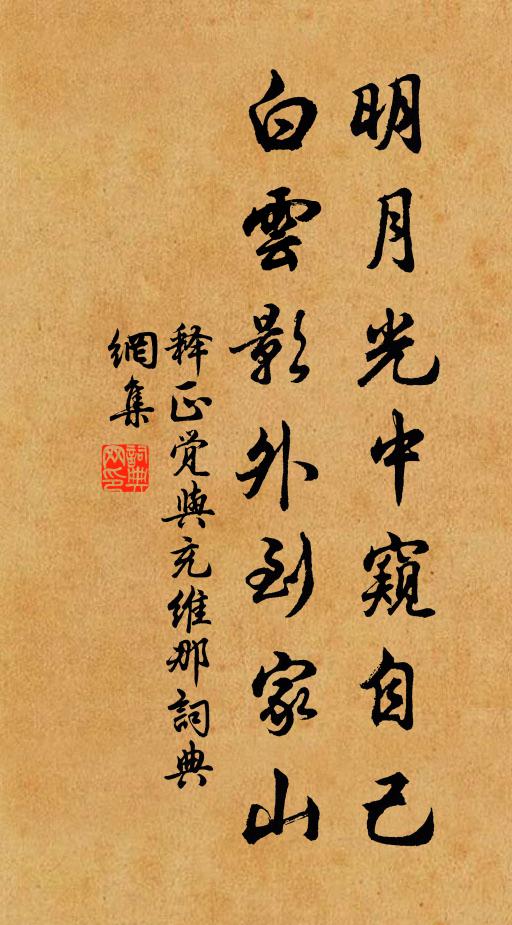 明月光中窺自己
白雲影外到家山
释正覚與充維那詞典
網集
詞典
网印